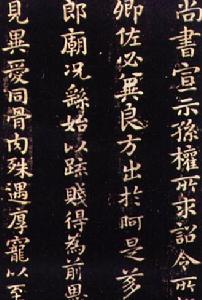 尚書宣示孫權所求詔令所
卿佐必冀良方出於阿是芻
郎廟況繇始以疏賤得為前恩
見異愛同骨肉殊遇厚寵以至